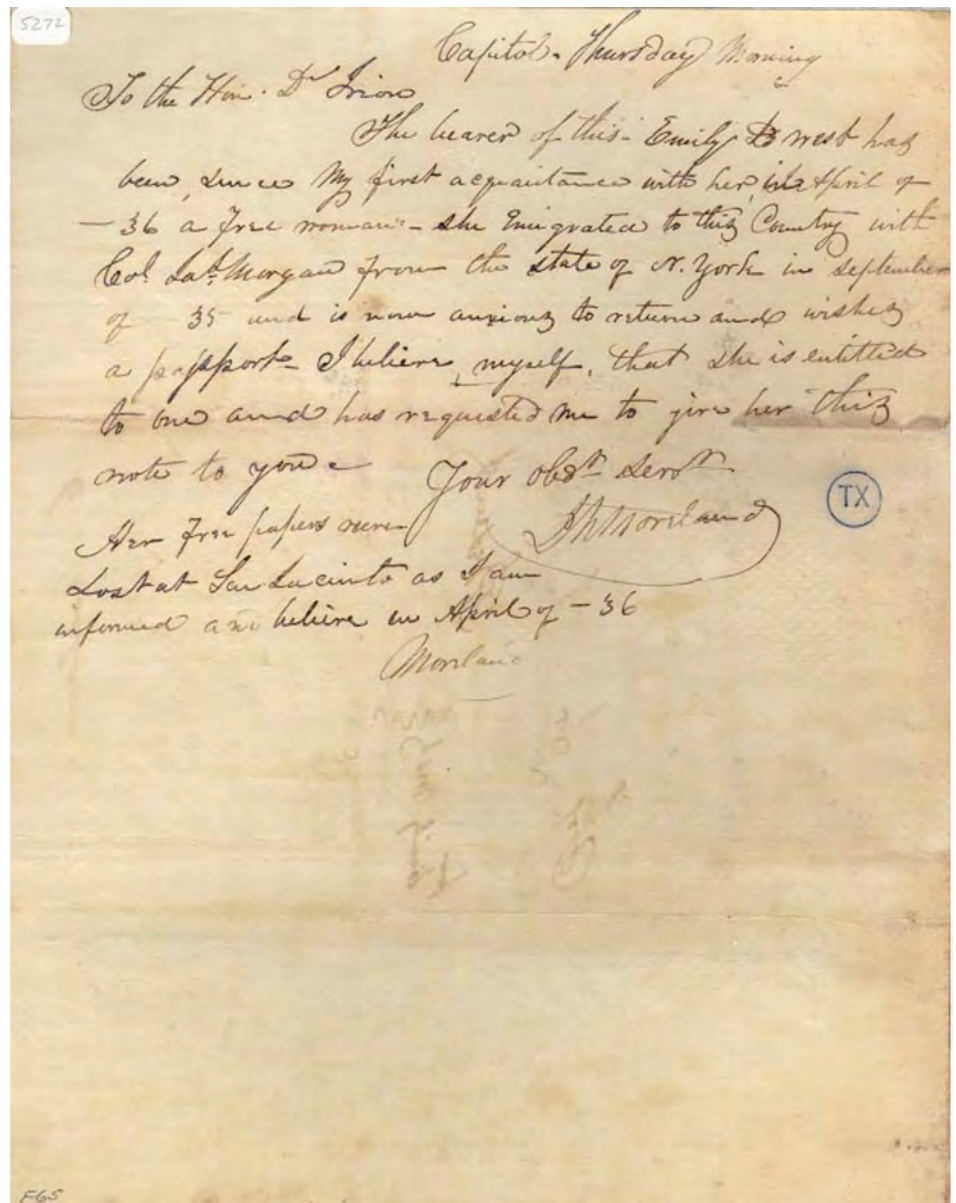 5272
Capitol - Thursday Morning
To the Hon. Dr Irion
The bearer of this - Emily D. West has
been, since my first acquaintance with her, in April of
- 36 a free woman - she Emigrated to this Country with
Col. Jas. Morgan from the state of N. York in september
of 35 and is now anxious to return and wishes
a passport - I believe, myself, that she is entitled
to one and has requested me to give her this
note to you -
Your Obdt Servt
I N Moreland
Her free papers were
Lost at San Jacinto as I am
informed and believe in April of - 36
Moreland
TX
F65